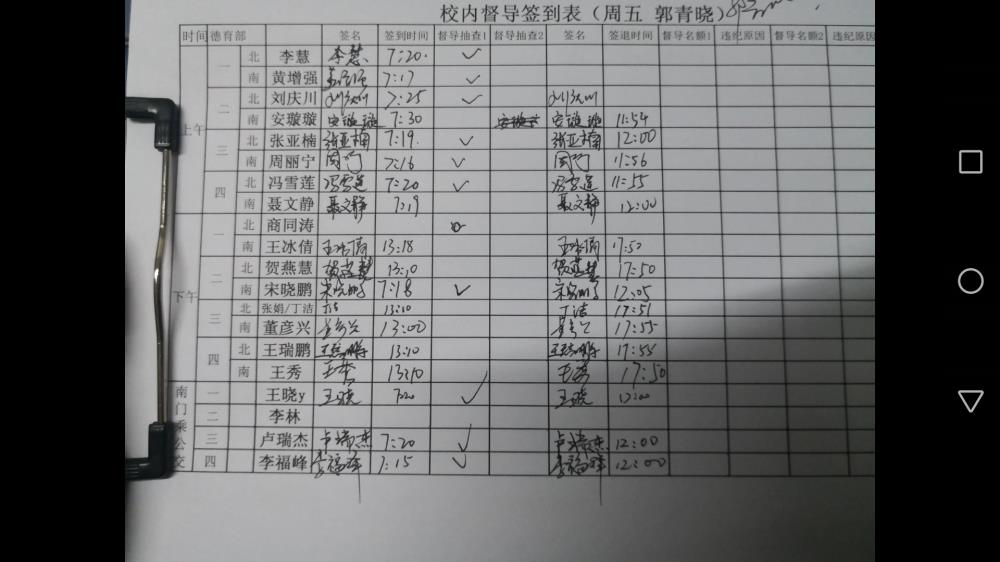 校内督导签到表（周五 郭青晓）
时间 德育部 签名 签到时间 督导抽查1 督导抽查2 签名 签退时间 督导名额1 违纪原因 督导名额2 违纪原因
上午 一 北 李慧 李慧 7:20 ✓
南 黄增强 7:17 ✓
二 北 刘庆川 刘庆川 7:25 ✓ 刘庆川
南 安璇璇 安璇璇 7:30 安璇璇 11:54
三 北 张亚楠 张亚楠 7:19 ✓ 张亚楠 12:00
南 周丽宁 7:16 ✓ 11:56
四 北 冯雪莲 冯雪莲 7:20 ✓ 冯雪莲 11:55
南 聂文静 聂文静 7:19 聂文静 12:00
下午 一 北 商同涛
南 王冰倩 王冰倩 13:18 王冰倩 17:50
二 北 贺燕慧 贺燕慧 13:10 贺燕慧 17:50
南 宋晓鹏 宋晓鹏 7:18 ✓ 宋晓鹏 12:05
三 北 张娟/丁洁 丁洁 13:10 丁洁 17:51
南 董彦兴 13:00 17:55
四 北 王瑞鹏 王瑞鹏 13:10 王瑞鹏 17:55
南 王秀 王秀 13:10 王秀 17:50
南门乘公交 一 王晓y 王晓 7:20 ✓ 王晓 12:00
二 李林
三 卢瑞杰 卢瑞杰 7:20 ✓ 卢瑞杰 12:00
四 李福峰 李福峰 7:15 ✓ 李福峰 12:00